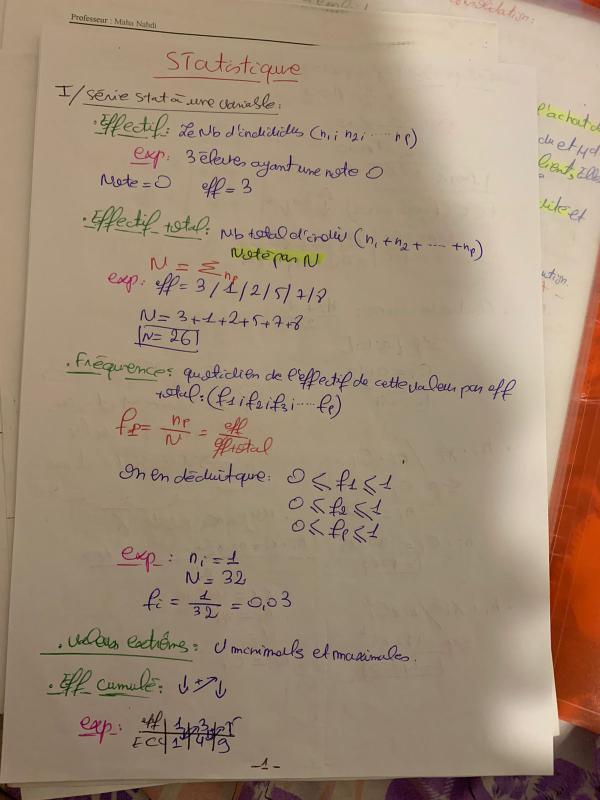 Professeur : Maha Nahdi
Statistique
I/ Série Stat à une variable:
. Effectif: Le Nb d'individus (n1; n2; ..... np)
exp: 3 élèves ayant une note 0
Note = 0 eff = 3
. Effectif total: Nb total d'indiv (n1 + n2 + .... + np)
Noté par N
N = Σ np
exp: eff = 3 / 1 / 2 / 5 / 7 / 8
N = 3+1+2+5+7+8
N = 26
. Fréquence: quotidien de l'effectif de cette valeur par eff
total: (f1; f2; f3; .... fp)
fp = np/N = eff/eff total
On en déduit que: 0 ≤ f1 ≤ 1
0 ≤ f2 ≤ 1
0 ≤ fp ≤ 1
exp: ni = 1
N = 32
fi = 1/32 = 0,03
. Valeurs extrêms: V minimals et maximales.
. Eff cumulé: ↓+↗↓
exp: eff 1 3 5
ECC 1 4 9
-1-